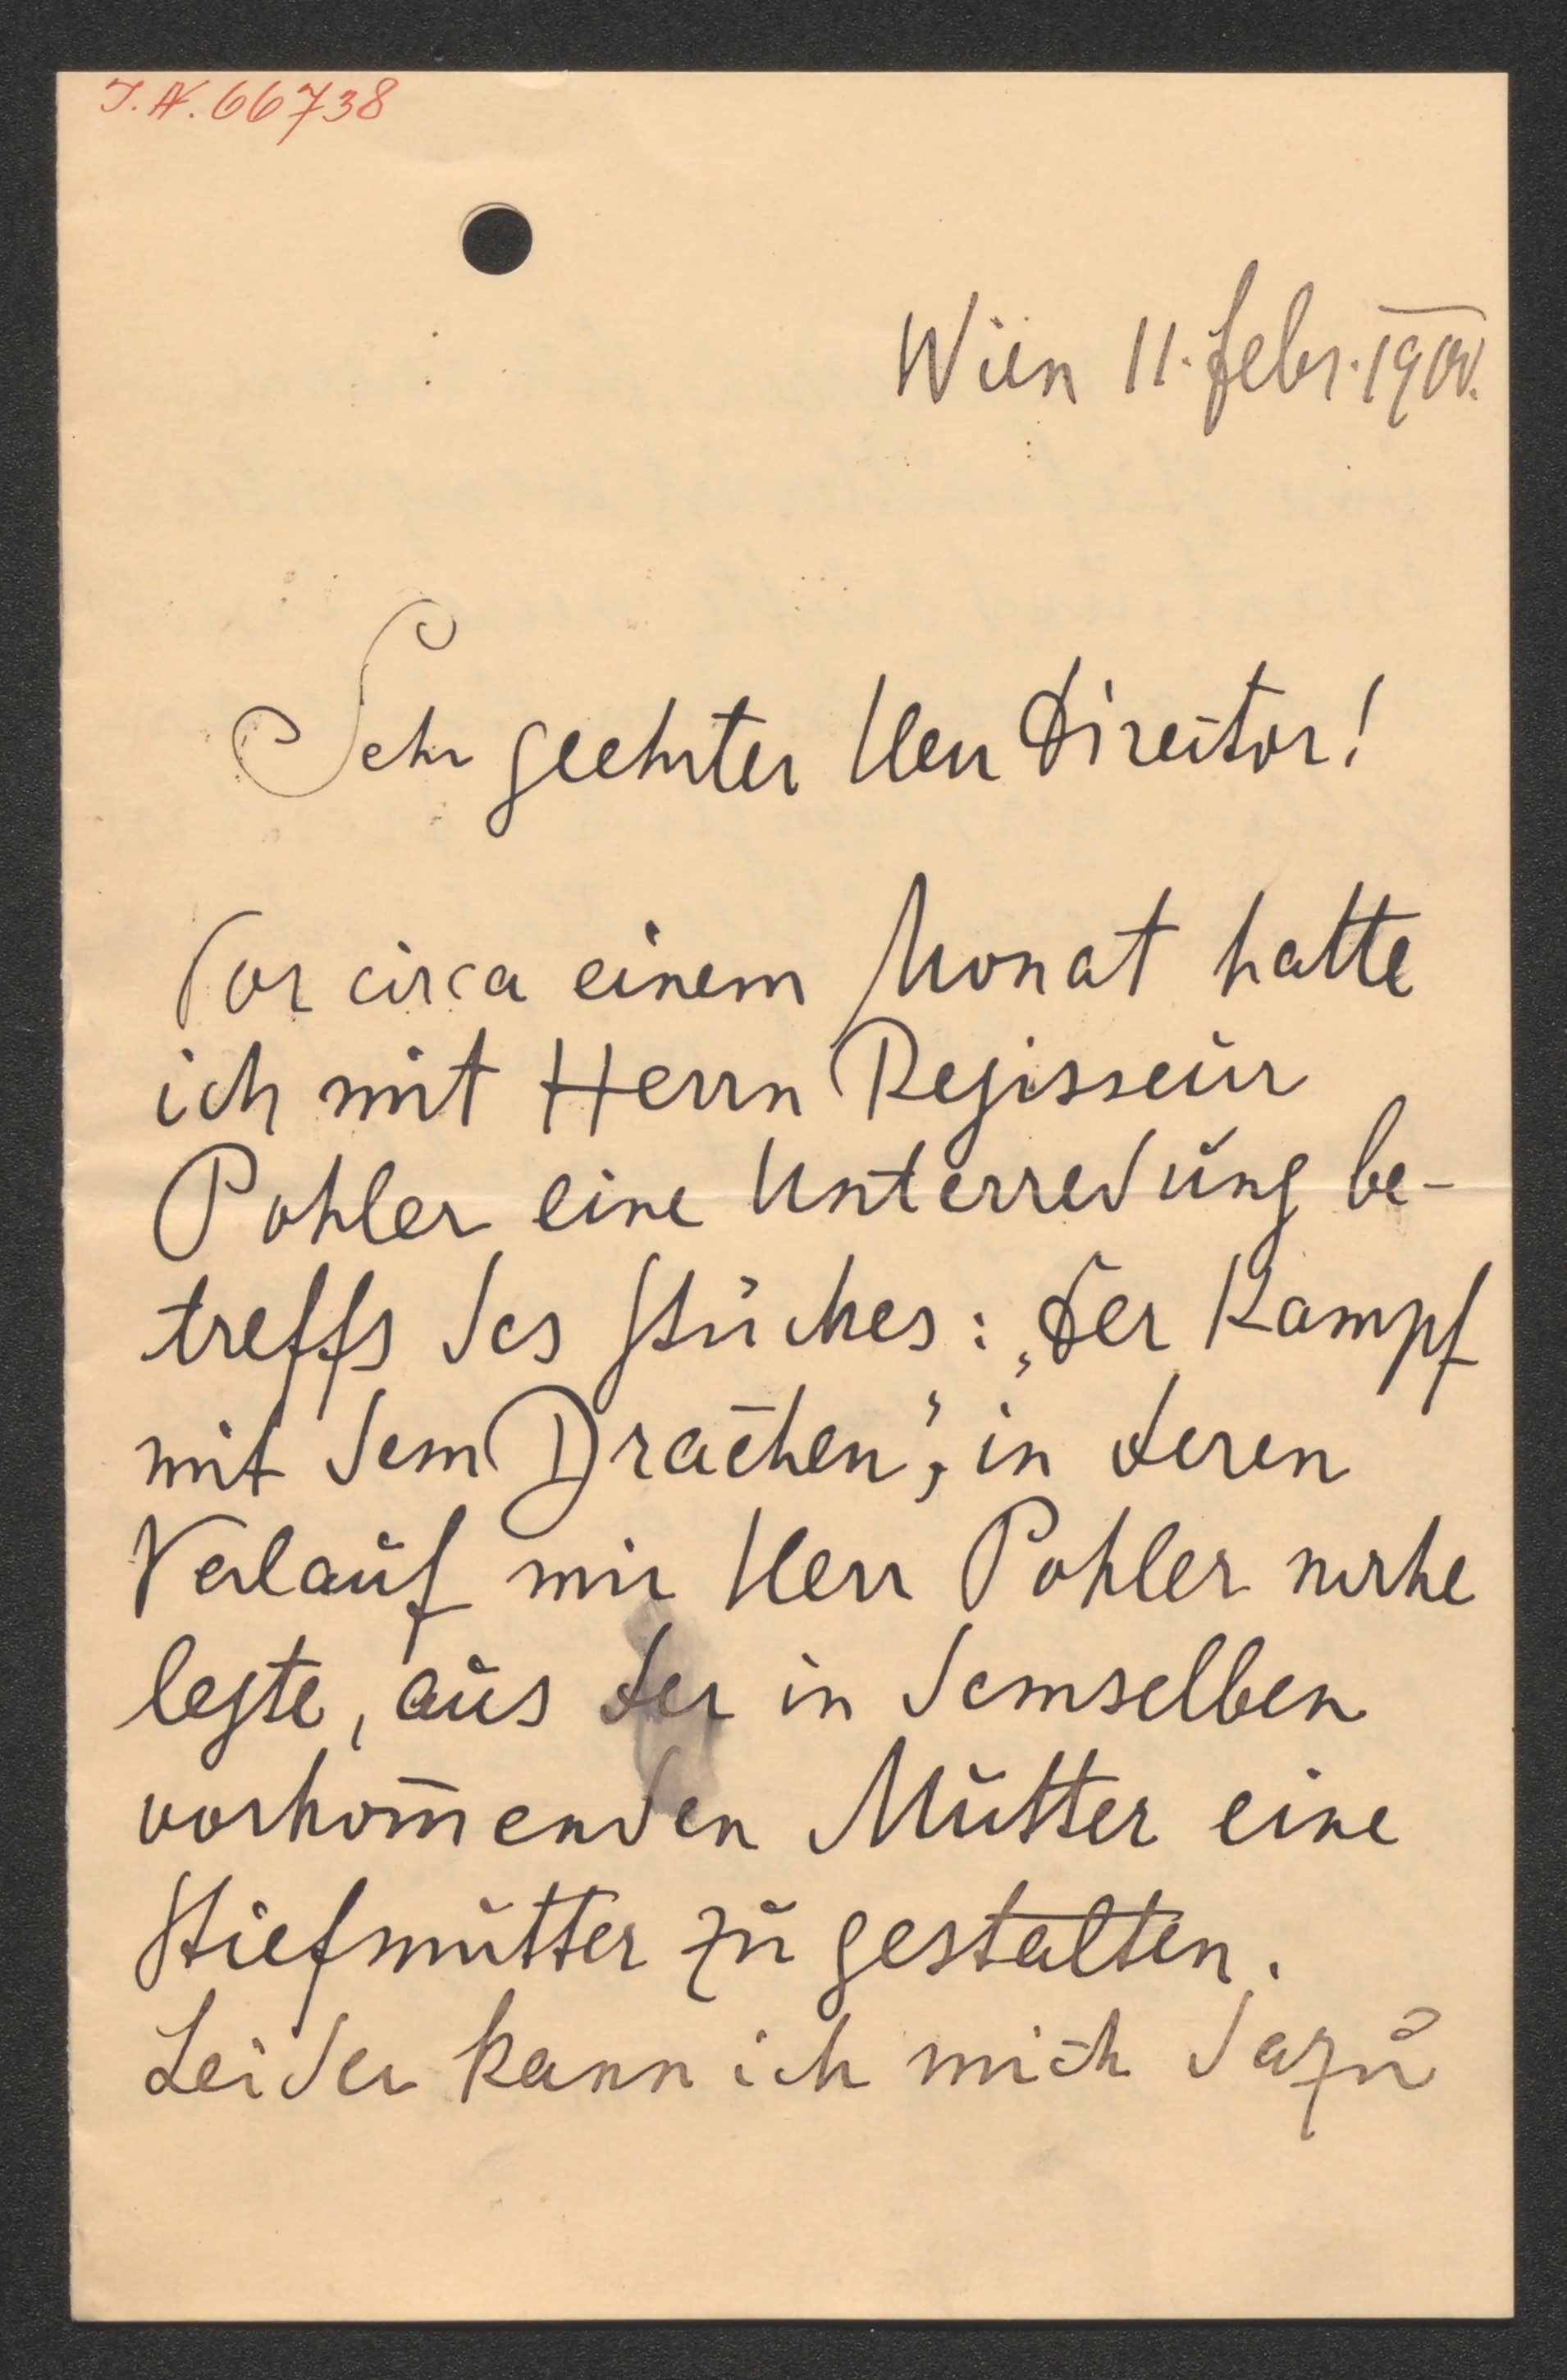 J.N. 66738
Wien 11. Febr. 1900.
Sehr geehrter Herr Director!
Vor circa einem Monat hatte
ich mit Herrn Regisseur
Pohler eine Unterredung be-
treffs des Stückes: „Der Kampf
mit dem Drachen", in deren
Verlauf mir Herr Pohler nahe
legte, aus der in demselben
vorkom̅enden Mutter eine
Stiefmutter zu gestalten.
Leider kann ich mich dazu